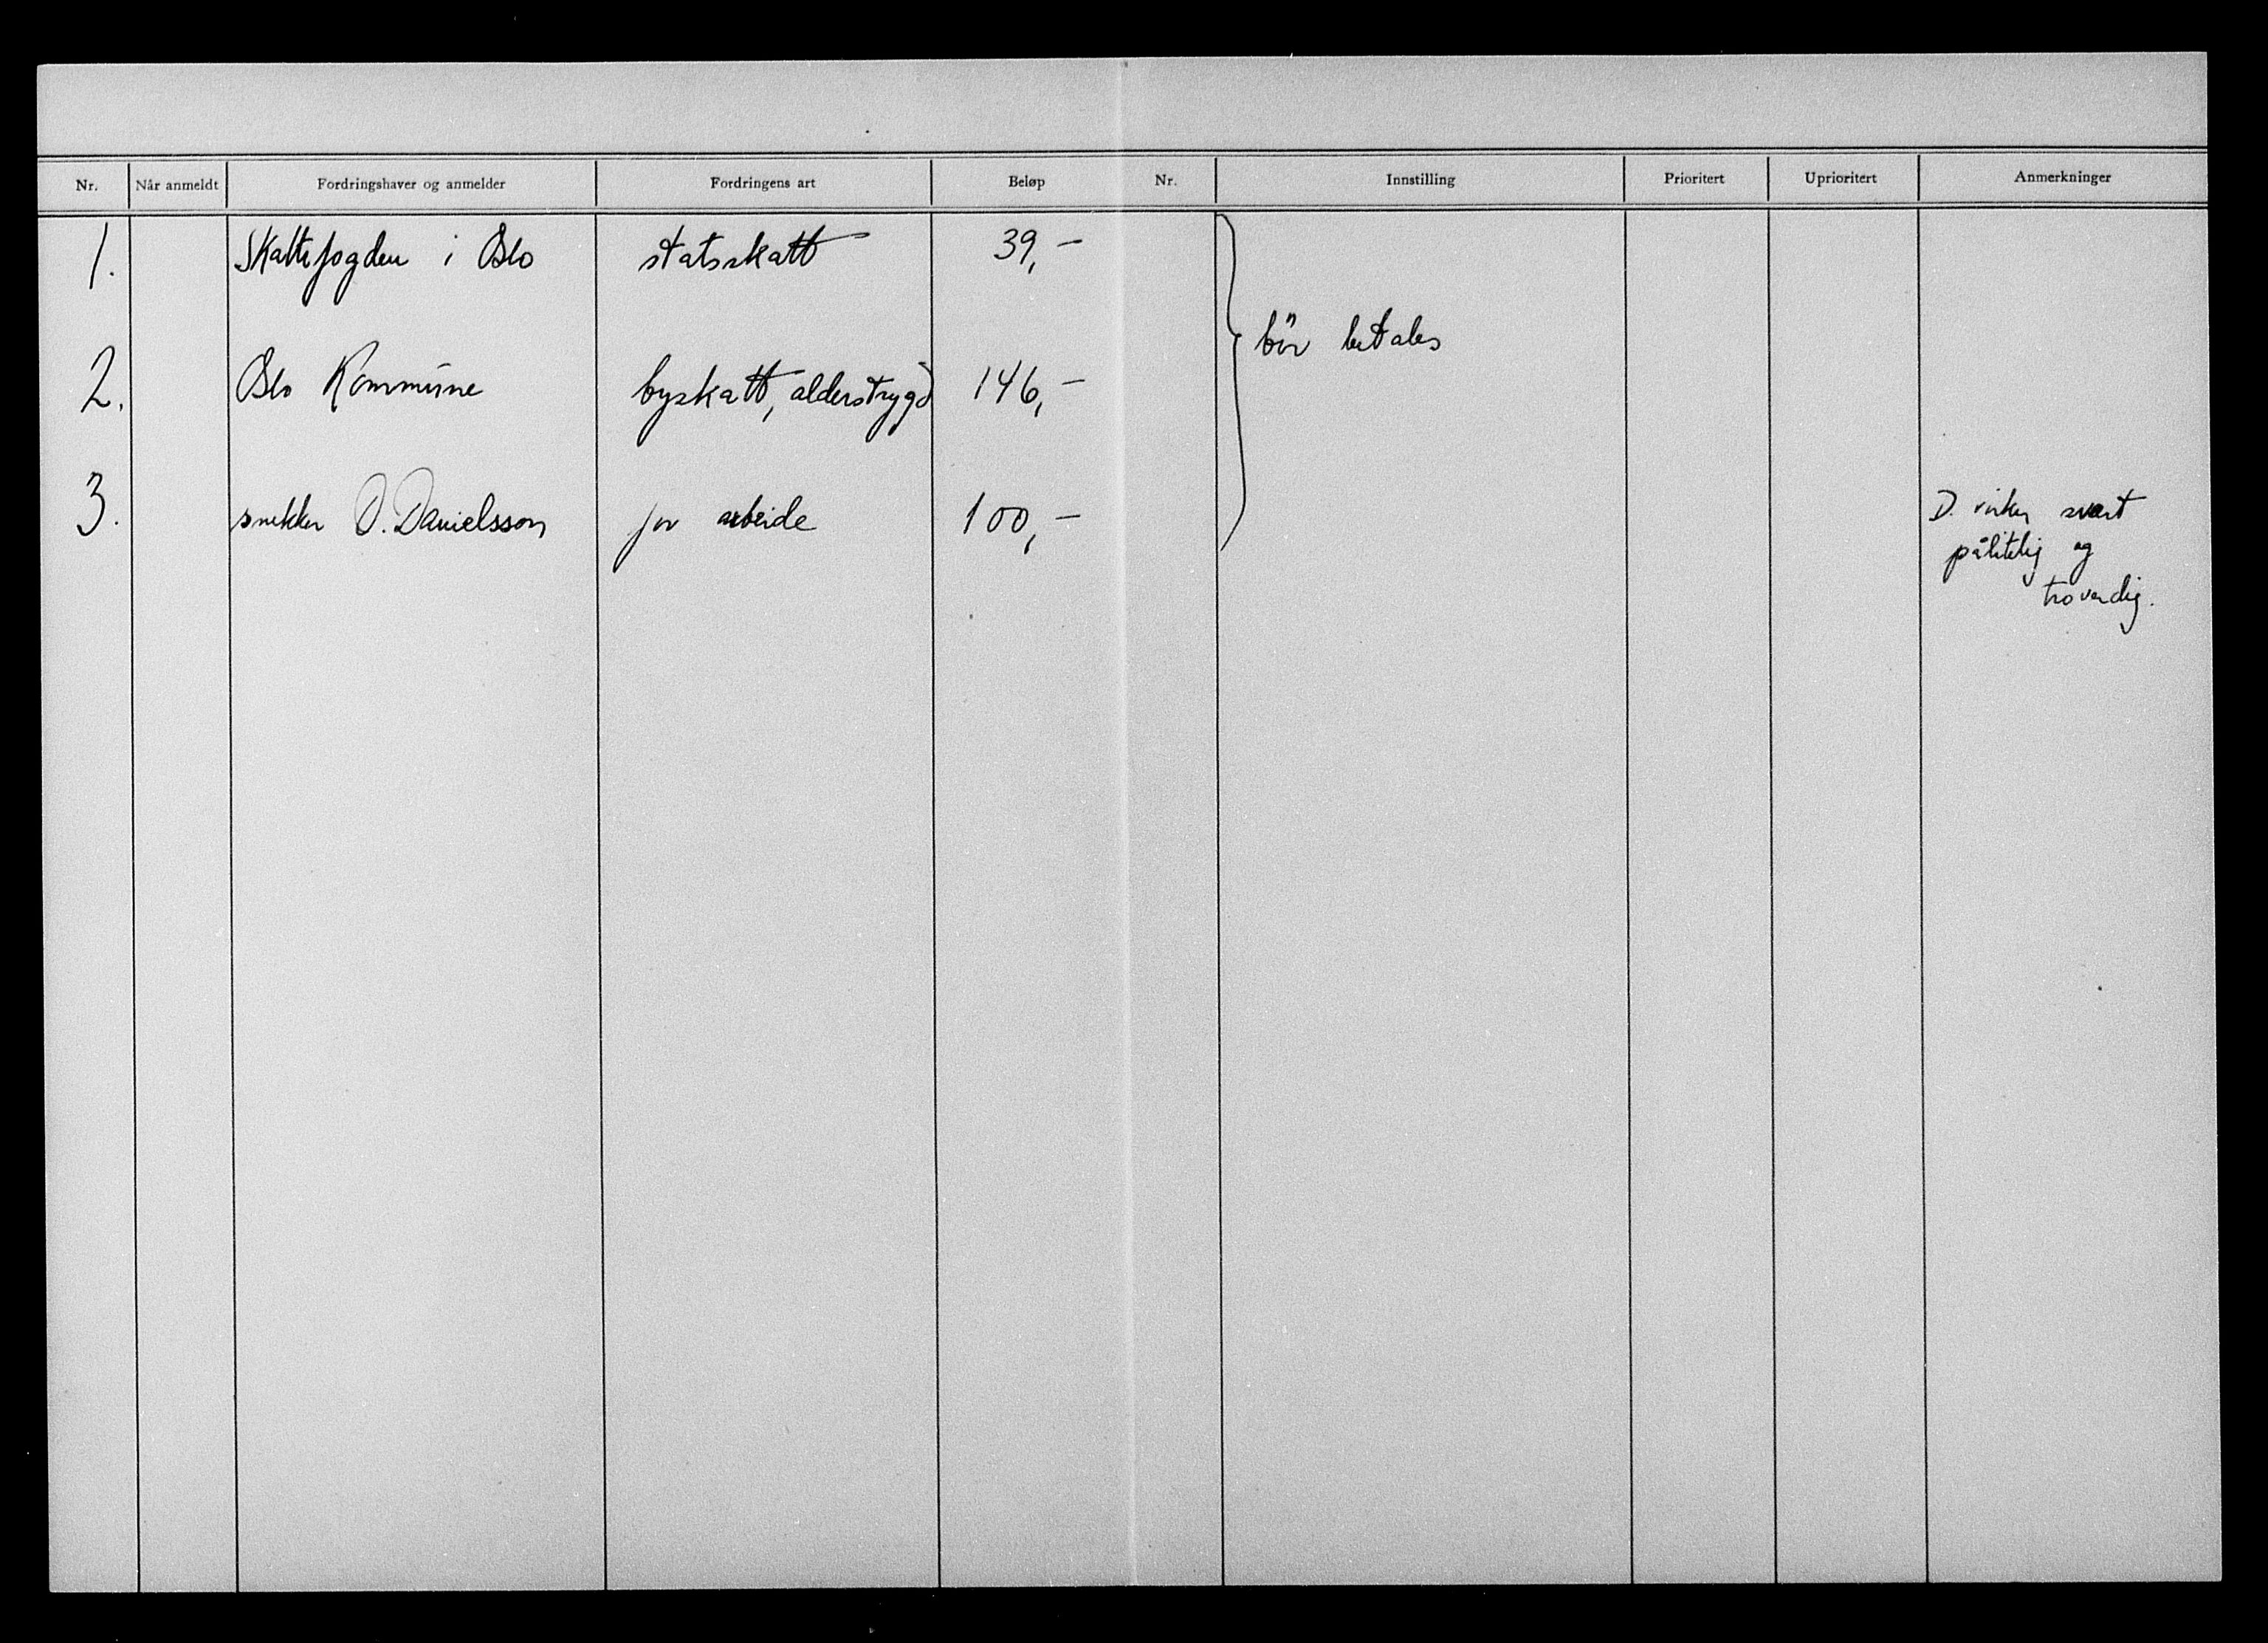 Nr. Når anmeldt Fordringshaver og anmelder Fordringens art Beløp Nr. Innstilling Prioritert Uprioritert Anmerkninger
1. Skattefogden i Oslo statsskatt 39,-
bör betales
2. Oslo Kommune byskatt, alderstrygd 146,-
3. snekker O. Danielsson for arbeide 100,- D. virker svært
pålitelig og
troverdig.